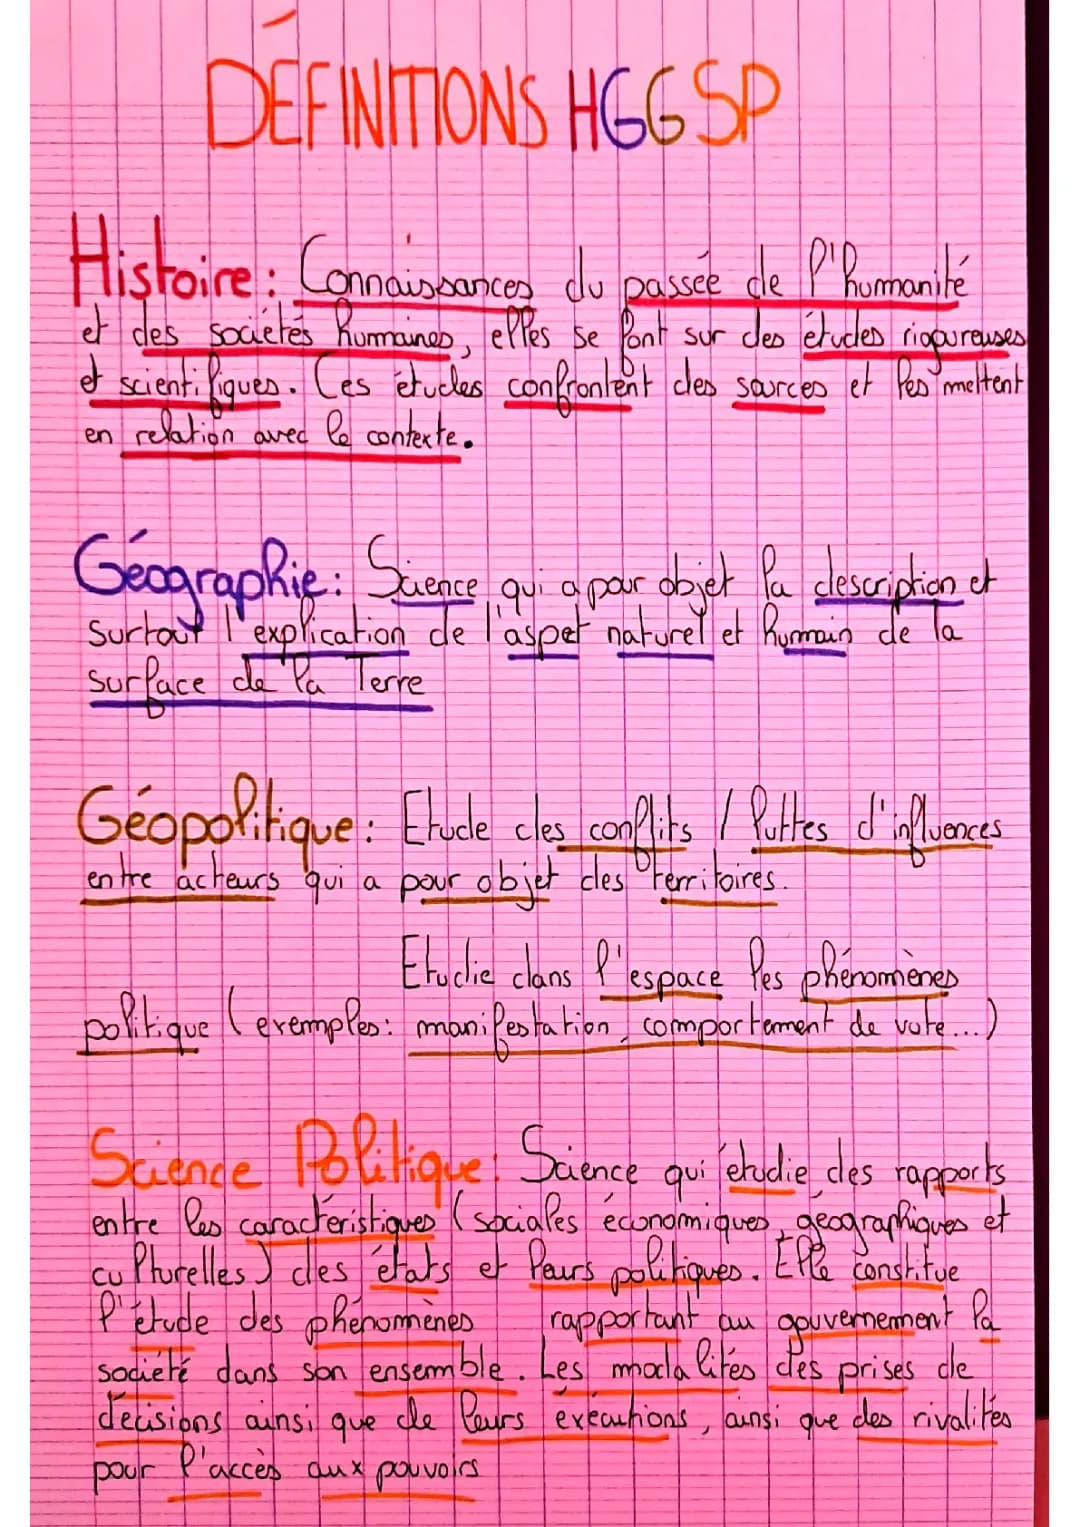 DÉFINITIONS HGGSP
Histoire : Connaissances du passée de l'humanité
et des sociétés humaines, elles se font sur des études rigoureuses
et scientifiques. Ces études confrontent des sources et les mettent
en relation avec le contexte.
Géographie : Science qui a pour objet la description et
surtout l'explication de l'aspet naturel et humain de la
surface de la Terre
Géopolitique : Etude des conflits / luttes d'influences
entre acteurs qui a pour objet des territoires.
Etudie dans l'espace les phénomènes
politique (exemples: manifestation, comportement de vote...)
Science Politique : Science qui étudie des rapports
entre les caractéristiques (sociales économiques, géographiques et
culturelles) des états et leurs politiques. Elle constitue
l'étude des phénomènes rapportant au gouvernement la
société dans son ensemble. Les modalités des prises de
décisions ainsi que de leurs exécutions, ainsi que des rivalités
pour l'accès aux pouvoirs